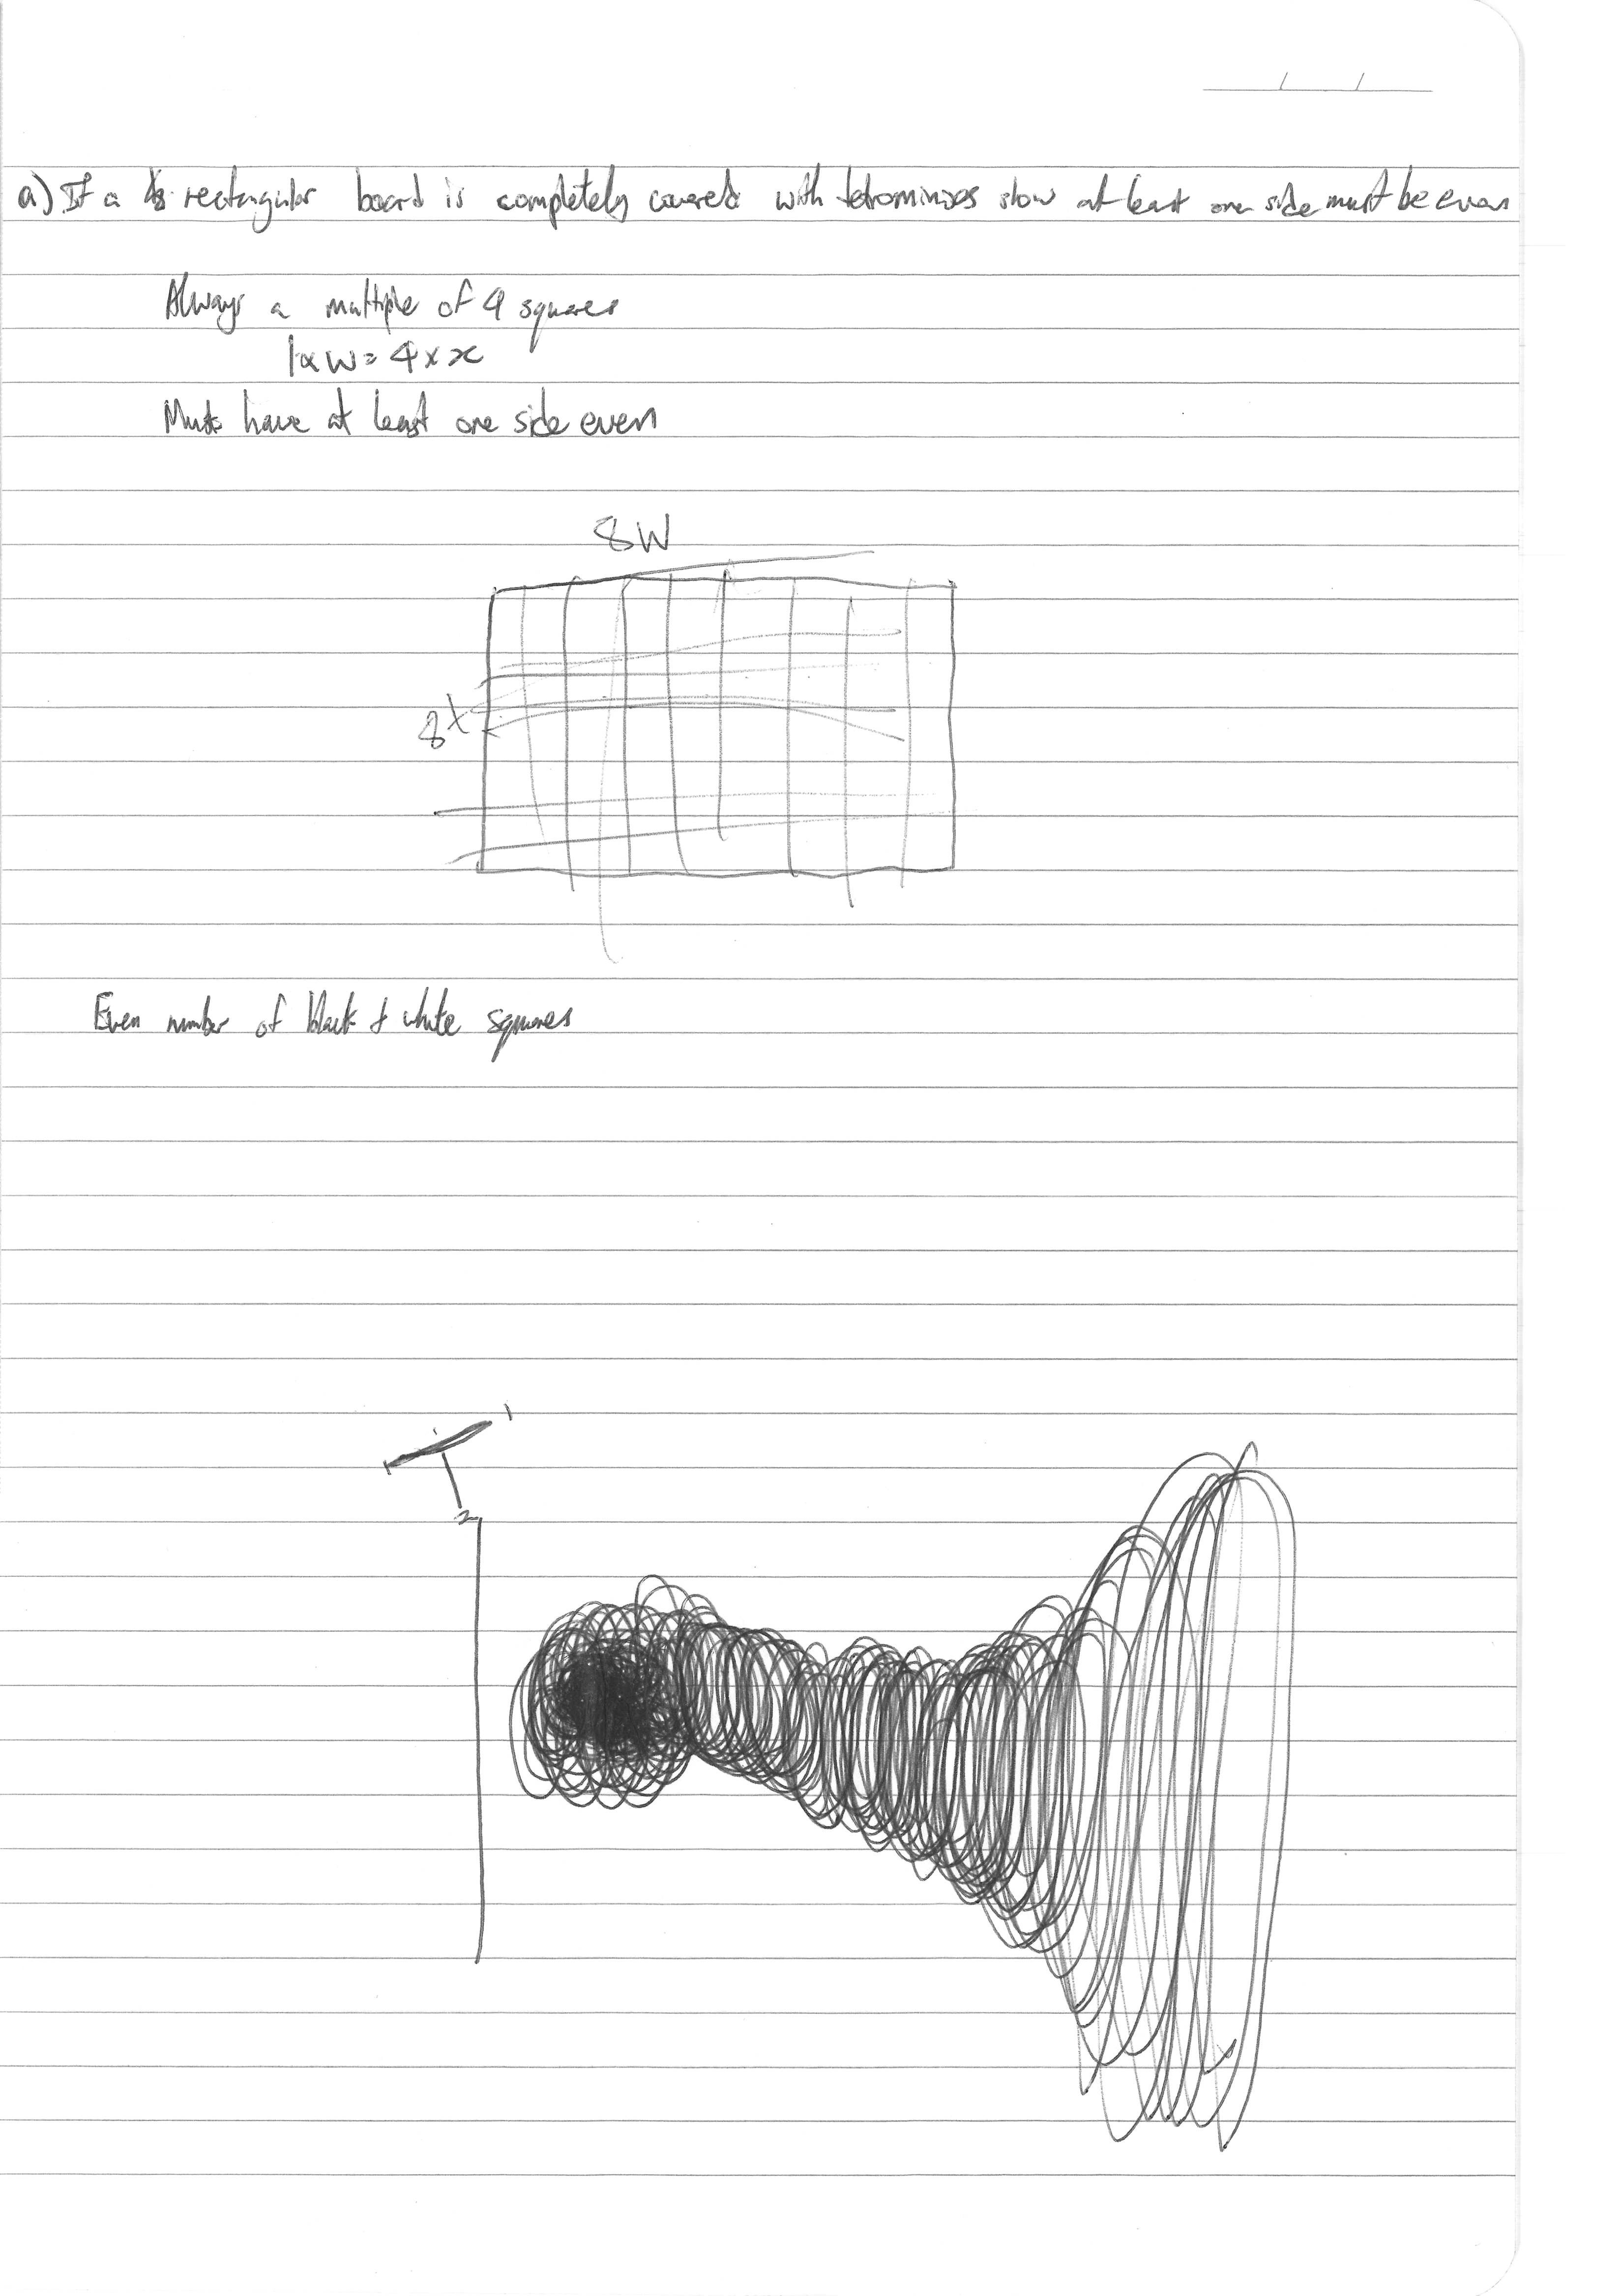 a) If a rectangular board is completely covered with tetrominoes show at least one side must be even
Always a multiple of 4 squares
l x w = 4 x x
Must have at least one side even
8W
8
Even number of black & white squares